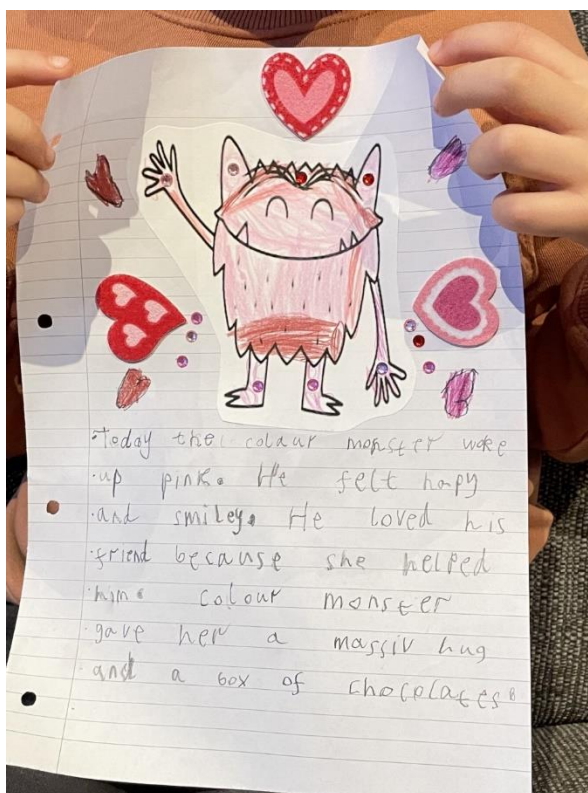 Today the colour monster woke
up pink. He felt hapy
and smiley. He loved his
friend because she helped
him. colour monster
gave her a massiv hug
and a box of chocolates.